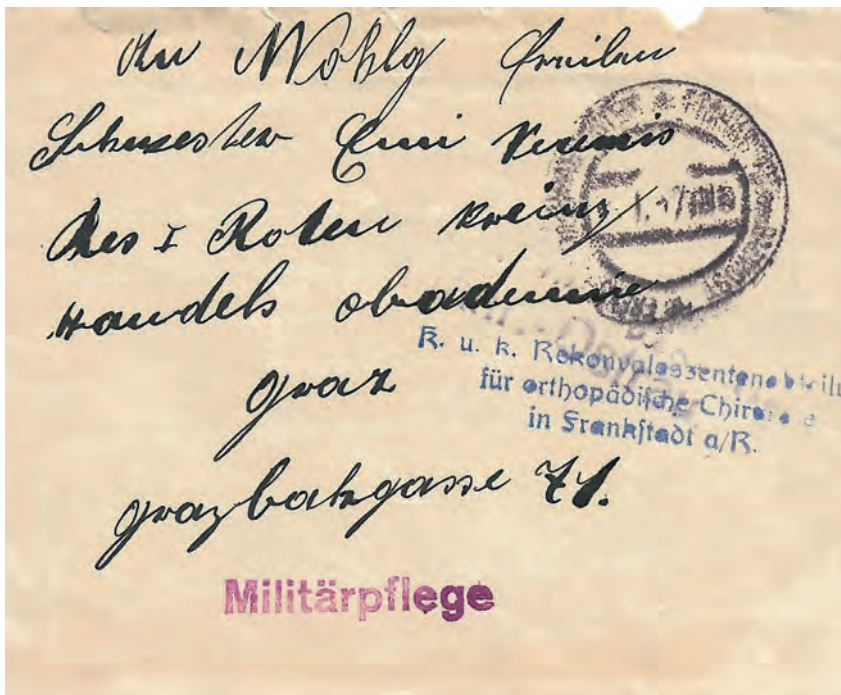 An Wohlg Freilen
Schwester Emi Vereinis
des I Roten Kreinz
Handels akademie
Graz
Grazbachgasse 71.
K. u. k. Rekonvaleszentenabteilu
für orthopädische Chirurgie
in Frankstadt a/R.
Militärpflege